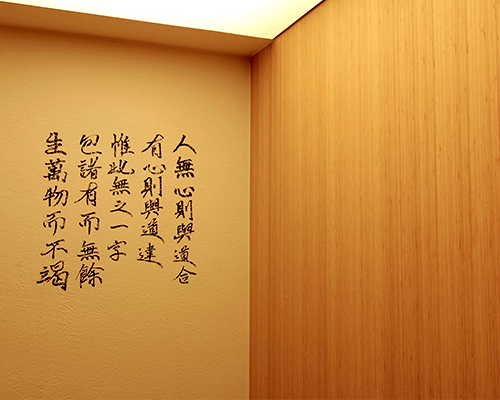 人無心則與道合
有心則與道違
惟此無之一字
包諸有而無餘
生萬物而不竭